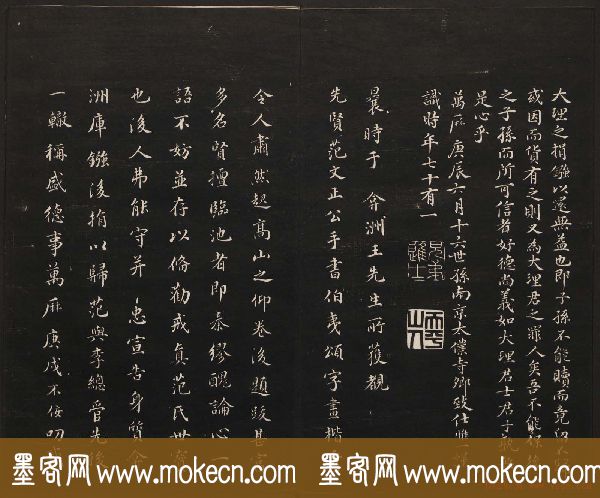 大理之捐鏹以還無益也即子孫不能贖而竟
或因而貨有之則又為大理君之罪人矣吾不能
之子孫而所可信者好德尚義如大理君士君子
是心乎
萬厤庚辰六月十六世孫南京太僕寺卿致仕惟
識時年七十有一
曩時于弇洲王先生所獲觀
先賢范文正公手書伯夷頌字畫楷
令人肅然起高山之仰卷後題跋甚
多名賢擅臨池者即秦繆醜論心
語不妨並存以偹勸戒真范氏世
也後人弗能守并忠宣告身質
洲庫鏹後捐以歸范與李總
一轍稱盛德事萬厤庚戌不佞
墨客网 www.mokecn.com
墨客网 www.mokecn.com